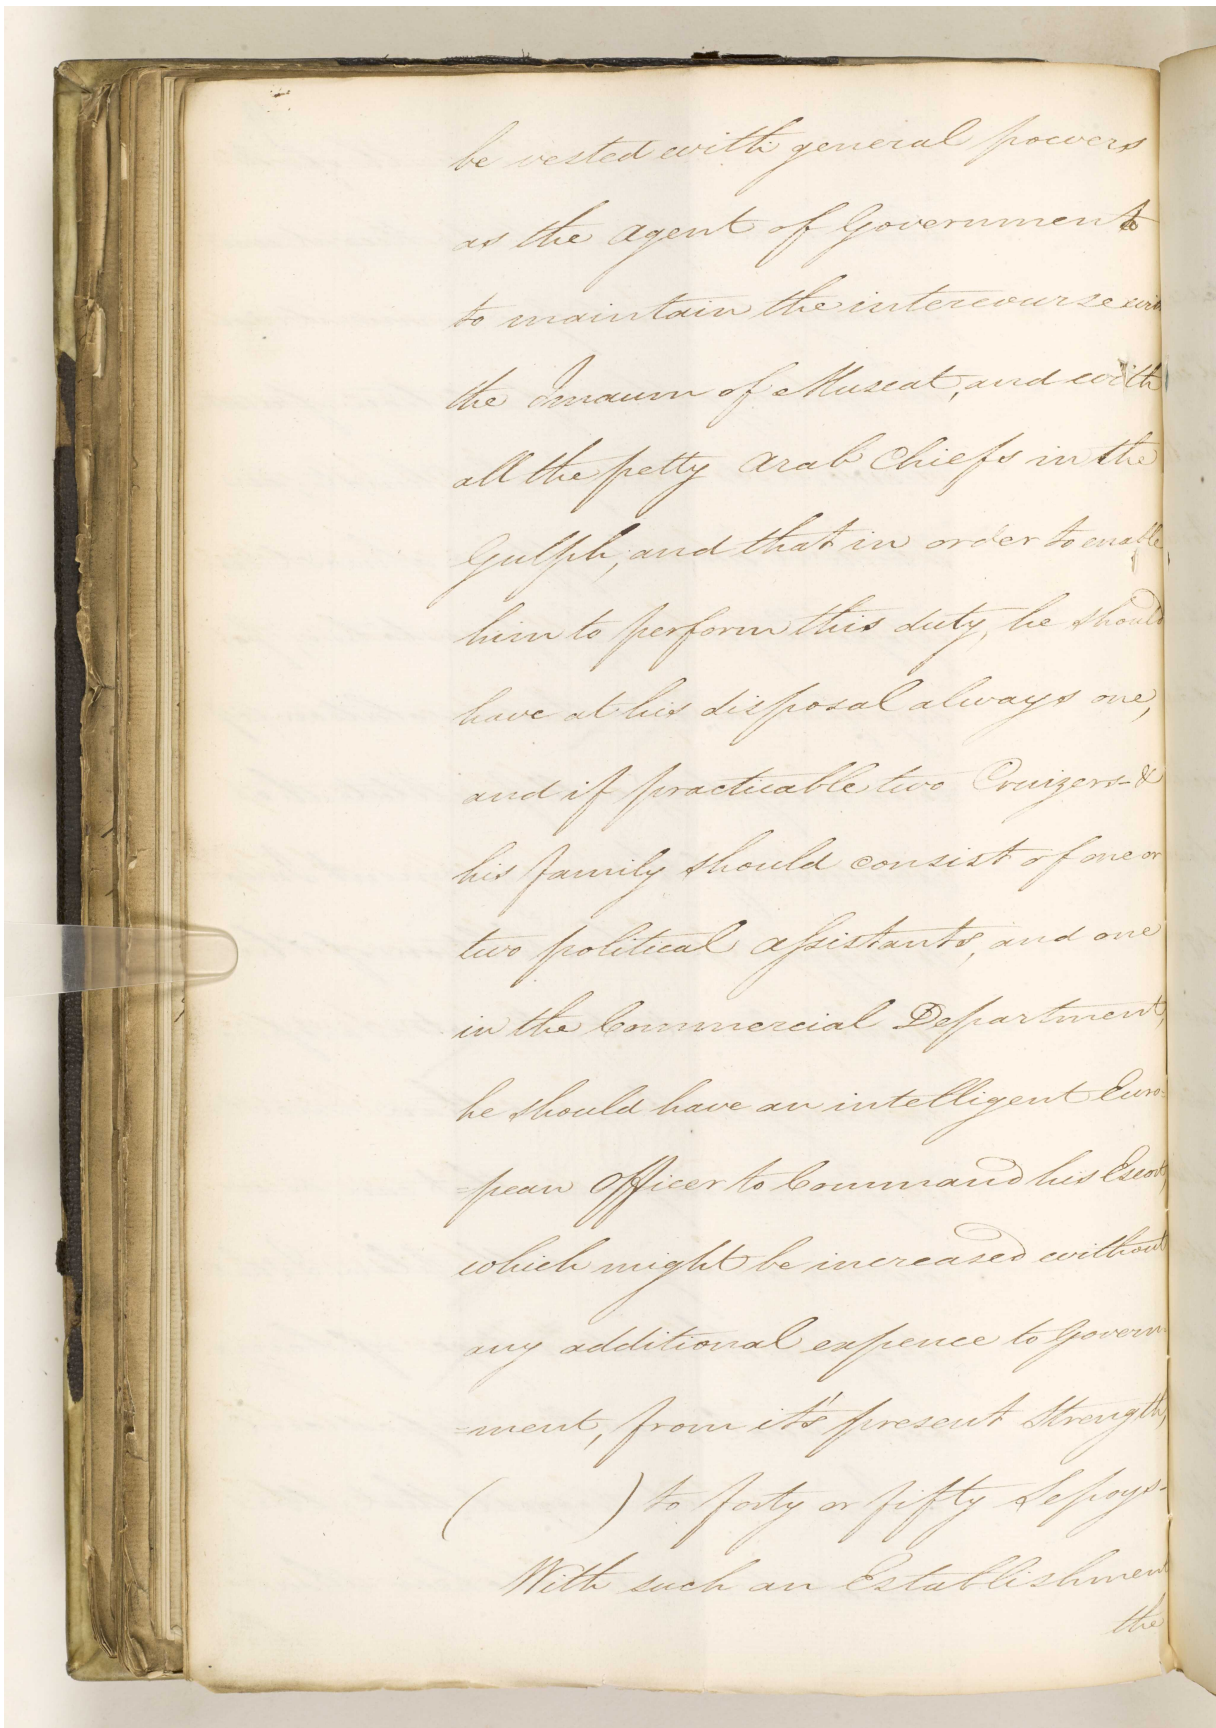 be vested with general powers
as the Agent of Government
to maintain the intercourse with
the Imaum of Muscat, and with
all the petty Arab Chiefs in the
Gulph, and that in order to enable
him to perform this duty, he should
have at his disposal always one,
and if practicable two Cruizers - &
his family should consist of one or
two political assistants, and one
in the Commercial Department,
he should have an intelligent Euro=
=pean Officer to Command his Escort,
which might be increased without
any additional expence to Govern
=ment, from it's present Strength,
( ) to forty or fifty Sepoys -
With such an Establishment
the